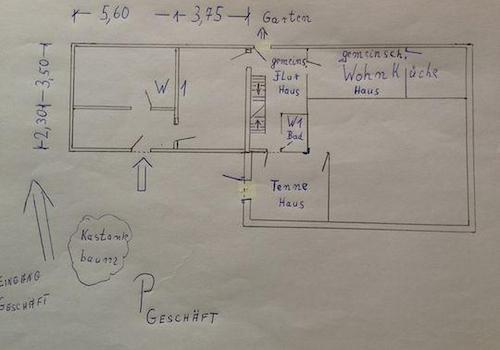 5,60
3,75
Garten
3,50
2,30
W 1
gemeins
Flur
Haus
gemeinsch.
Wohnküche
Haus
W1
Bad
Tenne
Haus
Kastanie
baum
EINGANG
GESCHÄFT
P
GESCHÄFT